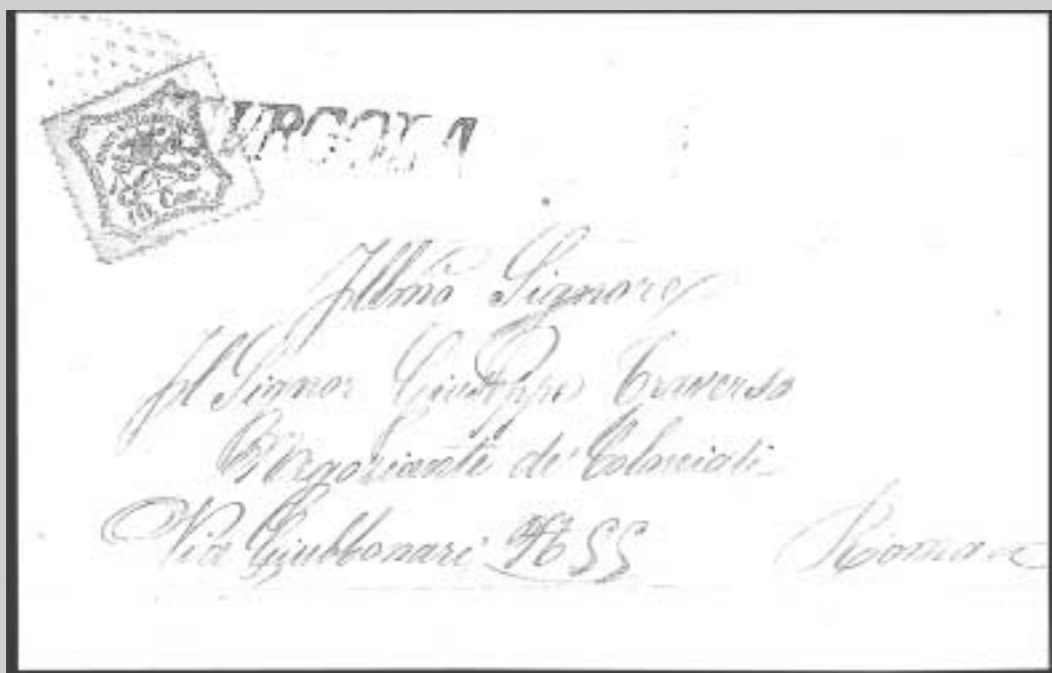 10 Cent.
Illmo Signore
Il Signor Giuseppe Traverso
Negoziante de' Coloniali
Via Giubbonari N
Roma